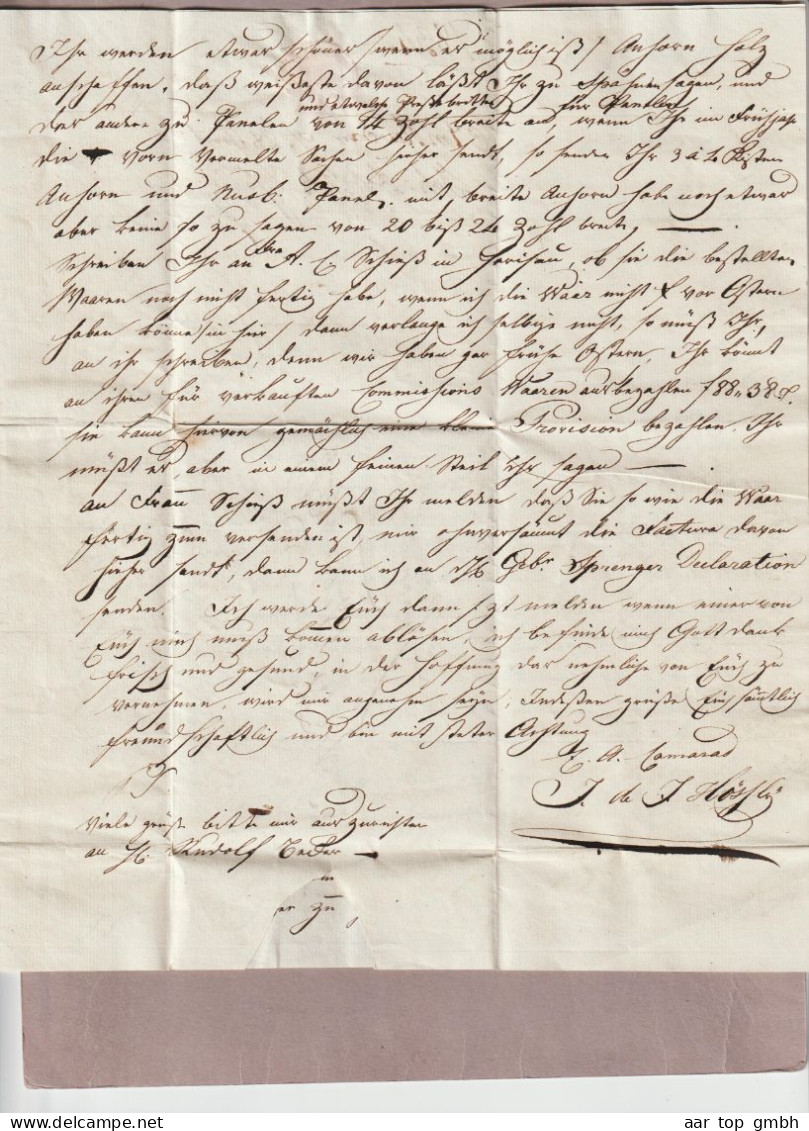 Ihr werden etwas schöner /wenn es möglich ist/ Anhorn Holz
anschaffen, daß weißeste davon läßt Ihr zu Spähnen sagen, und
das andere zu Panelen von 14 Zohl breite an, wenn Ihr im Frühjahr
und etwelche Preßbretter für Panelen
die vorn Vermelte Sachen hieher sendt, so senden Ihr 3 à 4 Kisten
Anhorn und Nusb. Panel. mit, breite Anhorn habe noch etwas
aber keine so zu sagen von 20 biß 24 Zohl breite,
Schreiben Ihr an Fra A. E Schieß in Herisau, ob sie die bestellten
Waaren noch nicht fertig habe, wenn ich die Waar nicht vor Ostern
haben könne /in hier/ dann verlange ich selbige nicht, so müßt Ihr,
an ihr schreiben, denn wir haben gar frühe Ostern, Ihr könnt
an ihren für verkauften Commissions Waaren ausbezahlen f 88,, 38
sie kann hiervon gemächlich eine kleine Provision bezahlen. Ihr
müßt es, aber in einem feinen Steil Ihr sagen
an Frau Schieß müßt Ihr melden daß Sie so wie die Waar
fertig zum versenden ist, mir ohnversäumt die Factura davon
hieher sendt, dann kann ich an HH Gebr Sprenger Declaration
senden. Ich werde Euch dann melden wenn einer von
Euch mich muß kommen ablösen, ich befinde mich Gott dank
frisch und gesund, in der hoffnung das nehmliche von Euch zu
vernehmen, wird mir angenehm seyn, Indeßen grüße Euch sämtlich
freundschaftlich und bin mit steter Achtung
E. A. Camarad
J. de J Hössly
Viele grüße bitte mir auszurichten
an H. Rudolf
zu
aar top gmbh